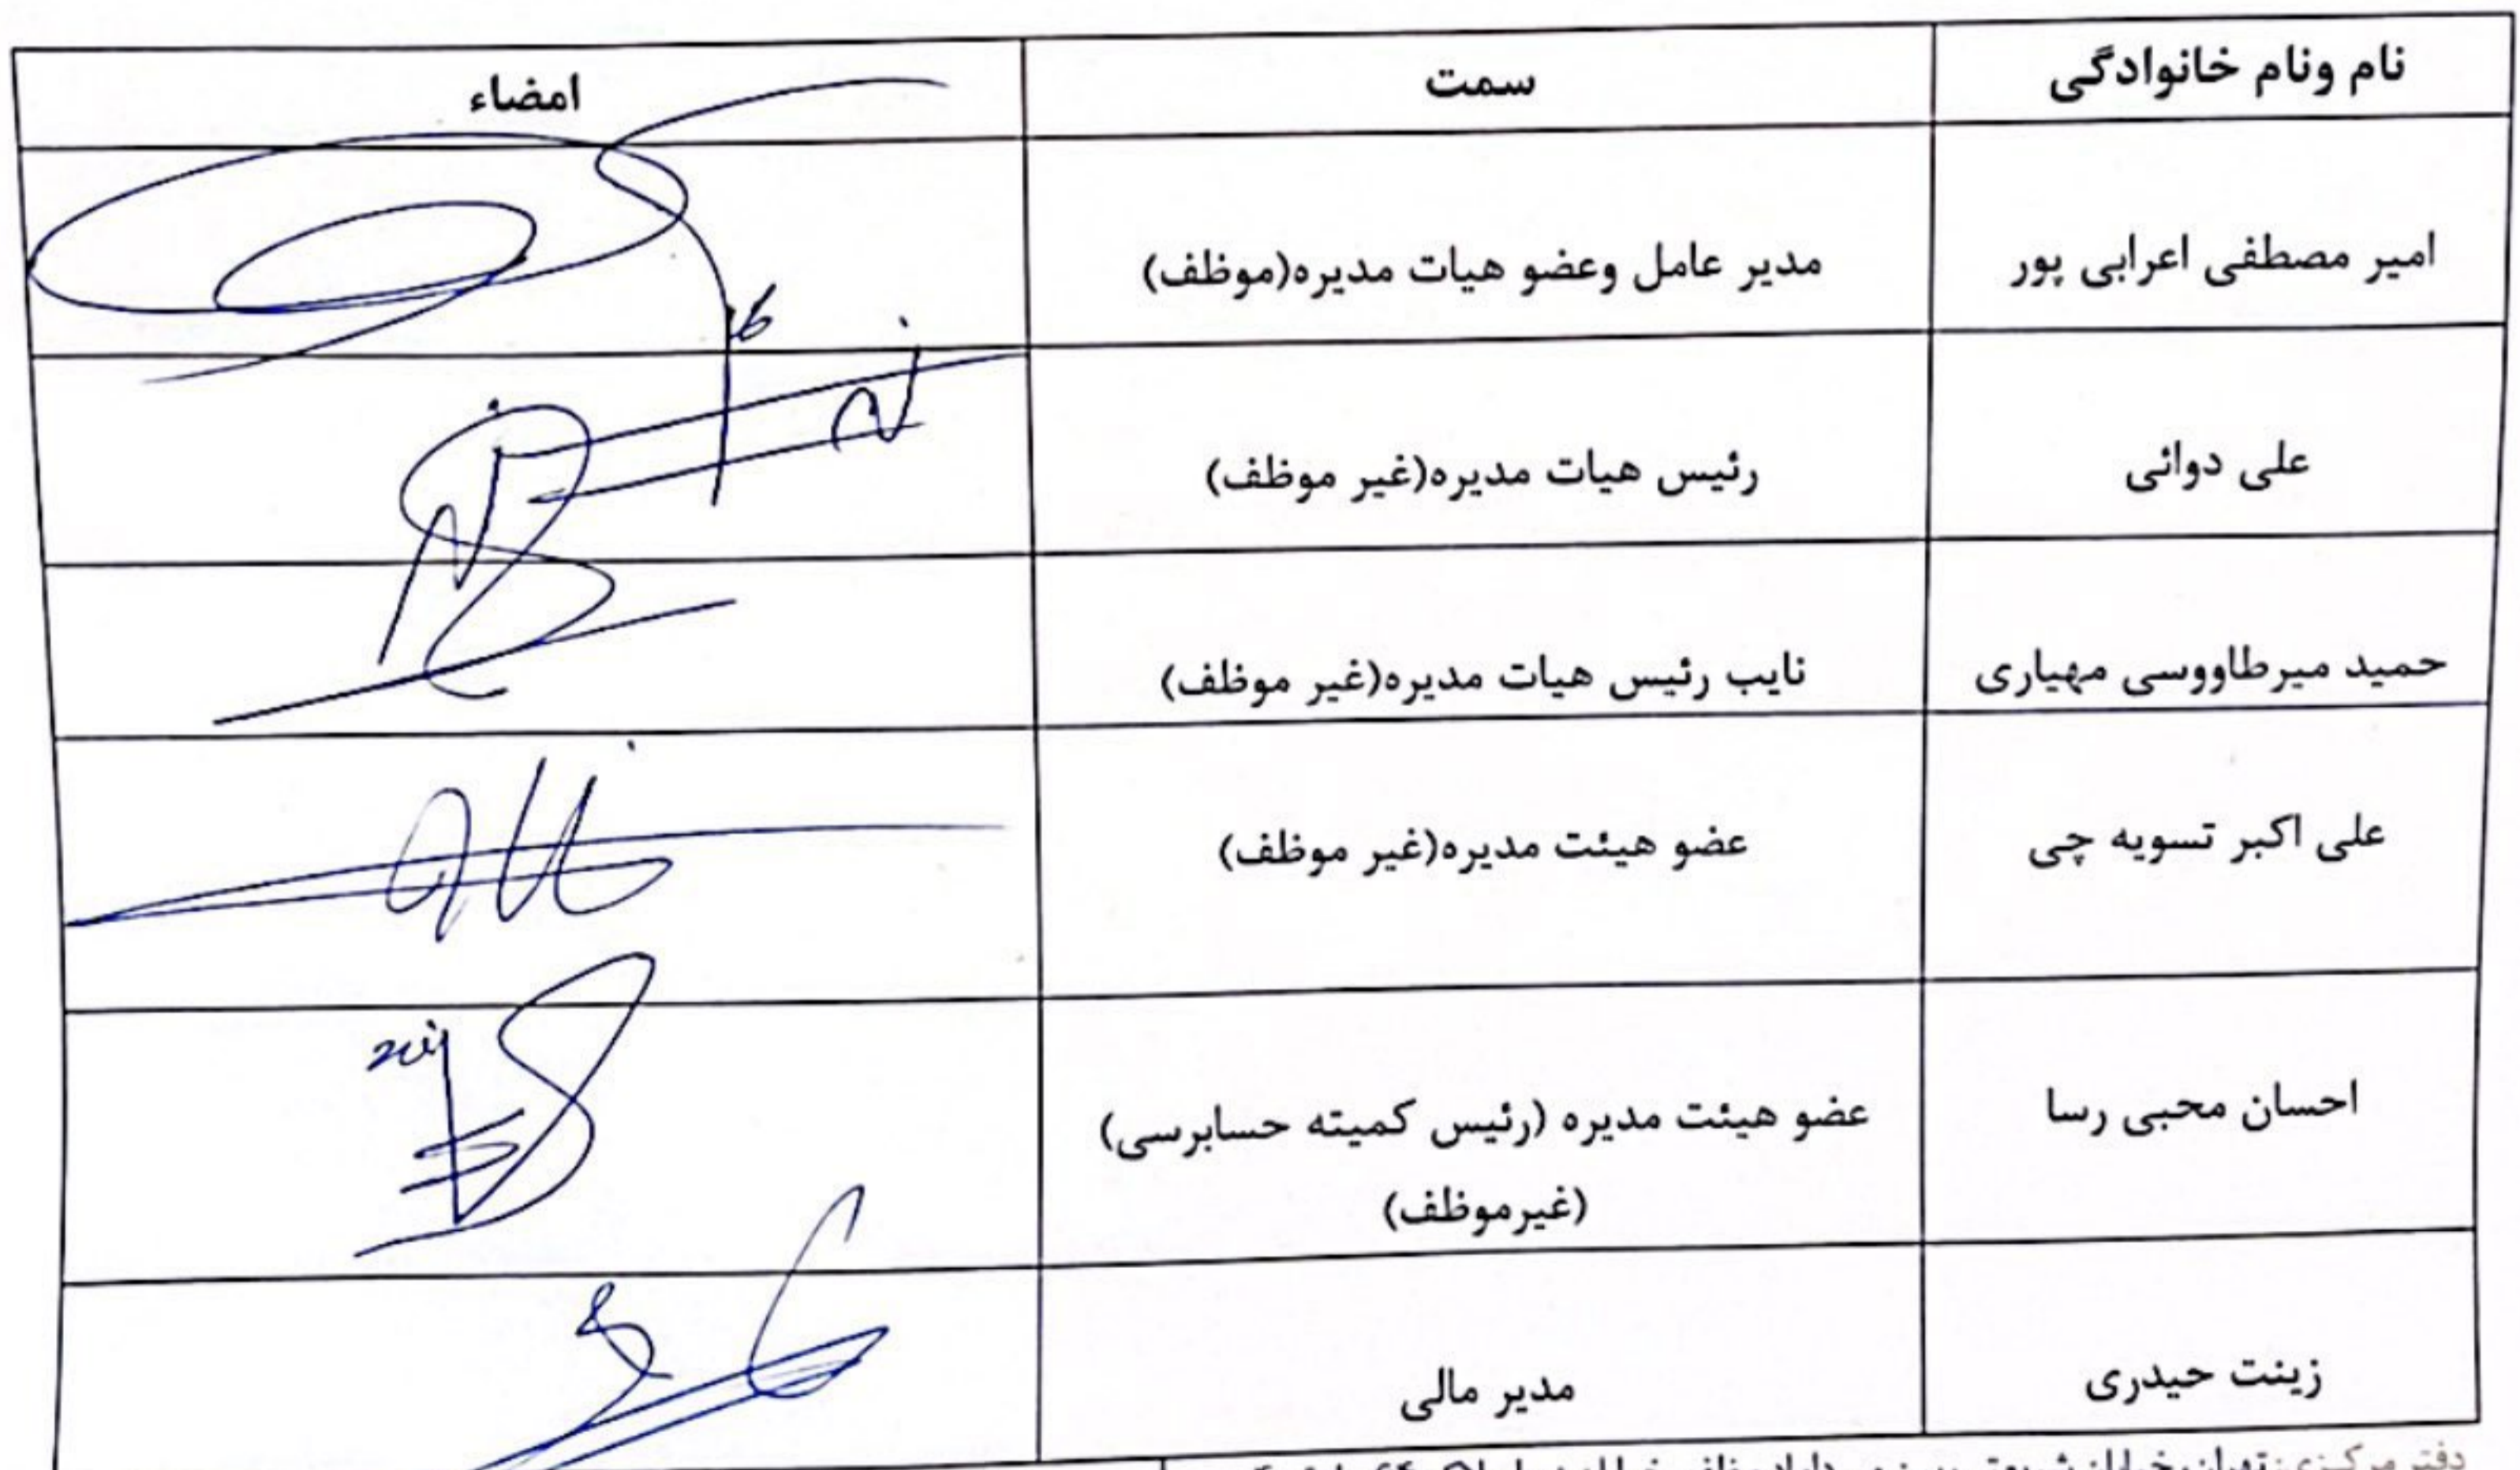 نام ونام خانوادگی سمت امضاء
امیر مصطفی اعرابی پور مدیر عامل وعضو هیات مدیره(موظف)
علی دوائی رئیس هیات مدیره(غیر موظف)
حمید میرطاووسی مهیاری نایب رئیس هیات مدیره(غیر موظف)
علی اکبر تسویه چی عضو هیئت مدیره(غیر موظف)
احسان محبی رسا عضو هیئت مدیره (رئیس کمیته حسابرسی)
(غیرموظف)
زینت حیدری مدیر مالی
دفتر مرکزی: تهران، خیابان